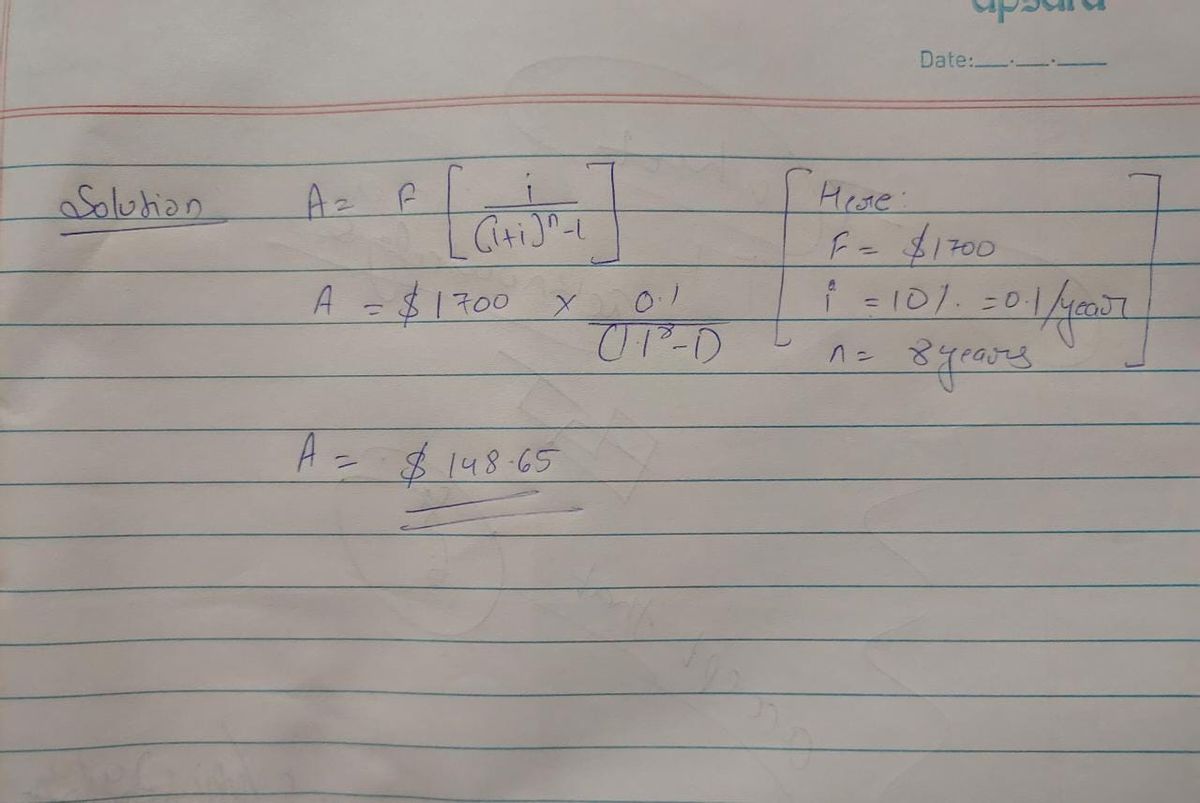 apsara
Date:__.__.__
Solution A = F [ i / (1+i)^n -1 ]
A = $1700 x 0.1 / (1.1^8-1)
A = $148.65
[ Here:
F = $1700
i = 10%. = 0.1/year
n = 8 years ]